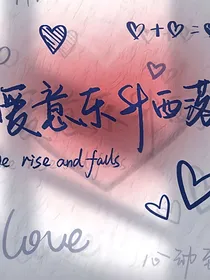 爱意东升西落
rise and falls
Love
心动